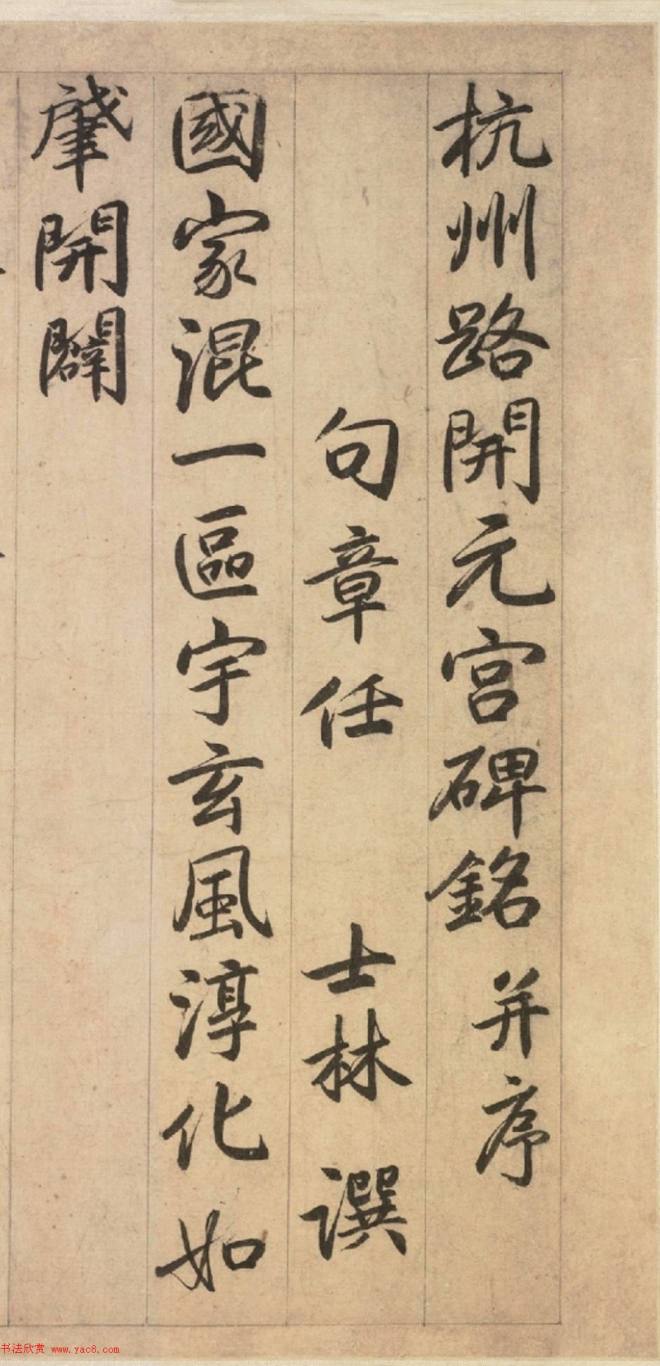 杭州路開元宮碑銘并序
句章任士林譔
國家混一區宇玄風淳化如
肇開闢
书法欣赏 www.yac8.com